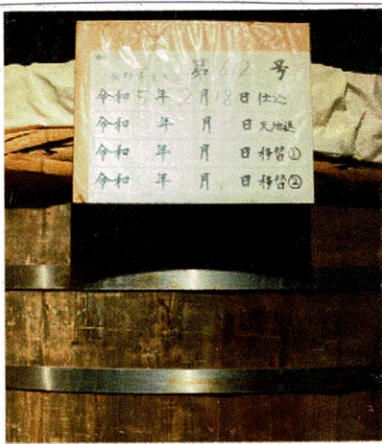 第612号
令和5年2月18日仕込
令和 年 月 日天地返
令和 年 月 日移替①
令和 年 月 日移替②